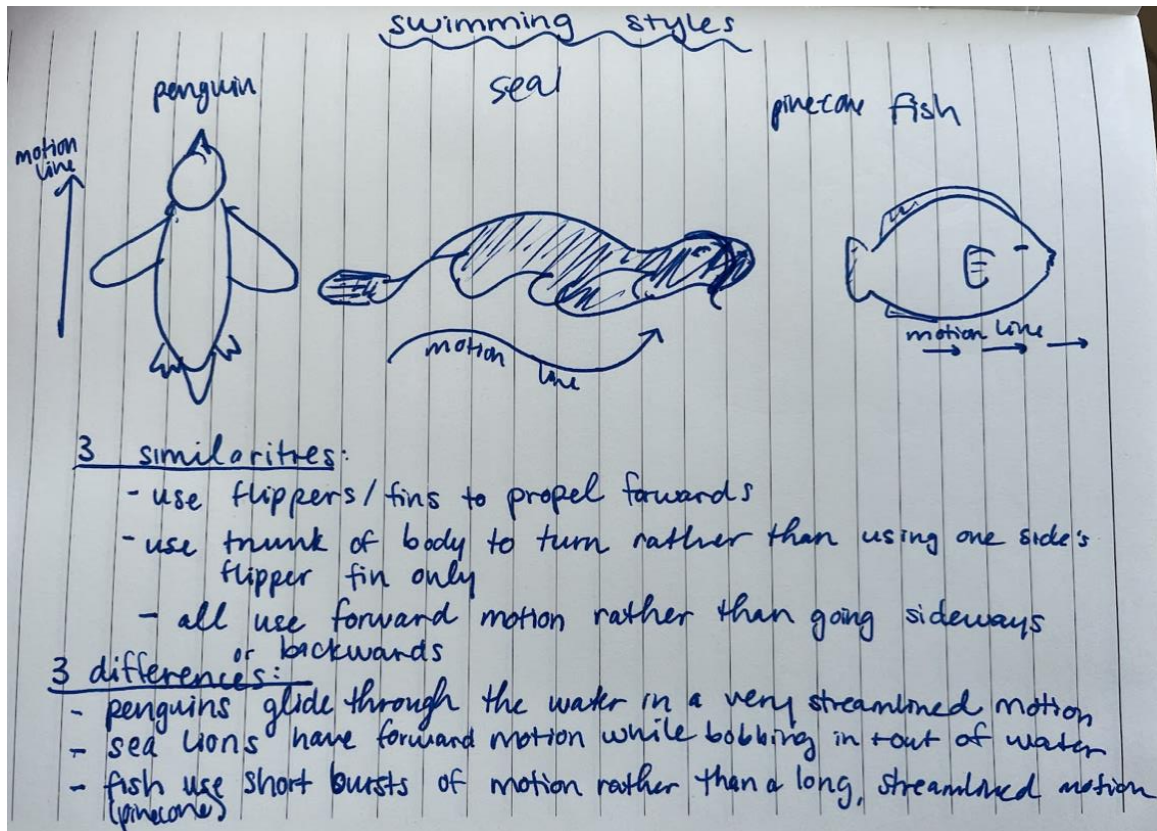 swimming styles
penguin
seal
pinecone fish
motion
line
motion
line
motion line
3 similarities:
- use flippers/fins to propel forwards
- use trunk of body to turn rather than using one side's
flipper fin only
- all use forward motion rather than going sideways
or backwards
3 differences:
- penguins glide through the water in a very streamlined motion
- sea lions have forward motion while bobbing in + out of water
- fish use short bursts of motion rather than a long, streamlined motion
(pinecone)